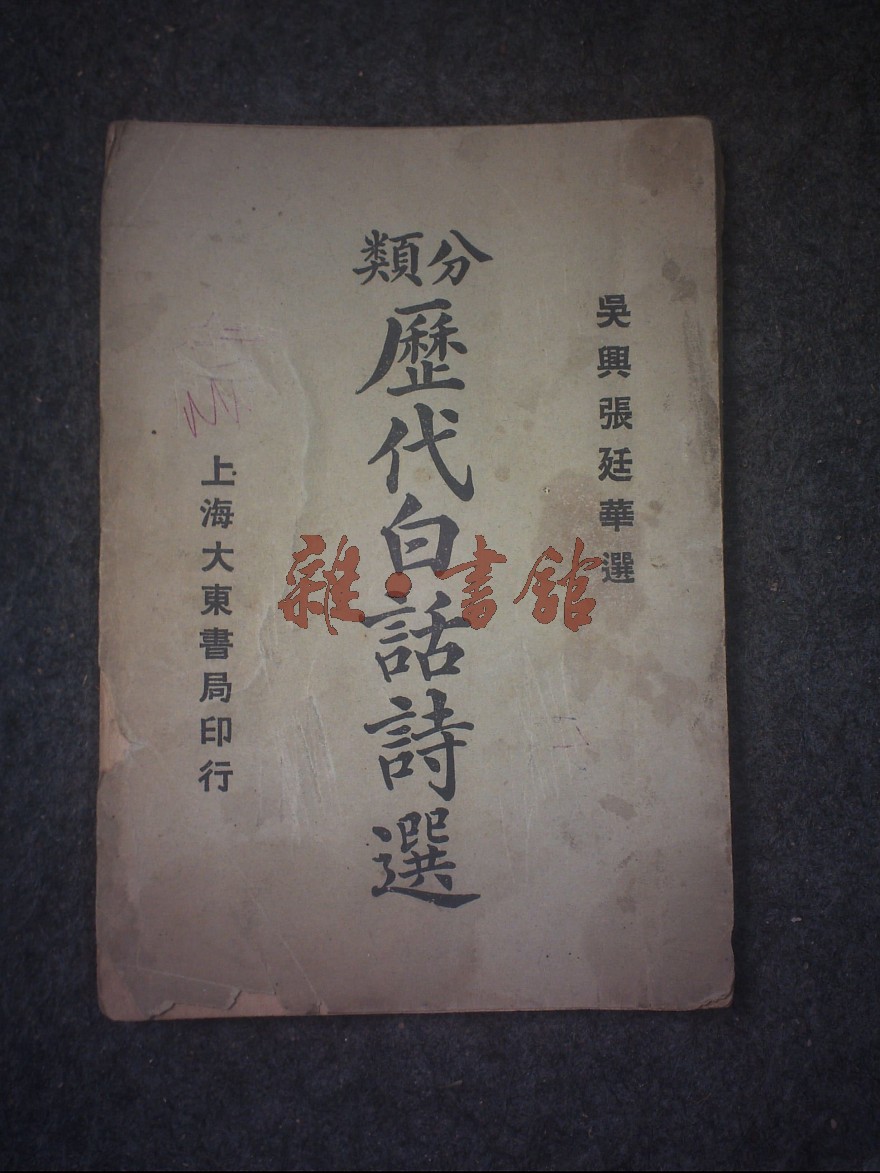 吳興張廷華選
分類
歷代白話詩選
上海大東書局印行
雜·書館